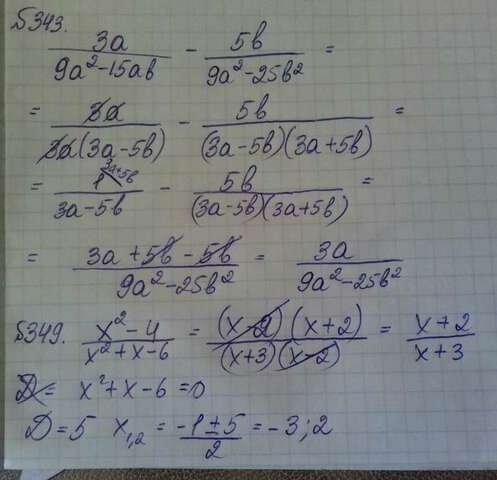 №343.
3a/(9a²-15ab) - 5b/(9a²-25b²) =
= 3a/(3a(3a-5b)) - 5b/((3a-5b)(3a+5b)) =
= 1^(3a+5b)/(3a-5b) - 5b/((3a-5b)(3a+5b)) =
= (3a+5b-5b)/(9a²-25b²) = 3a/(9a²-25b²)
№349. (x²-4)/(x²+x-6) = ((x-2)(x+2))/((x+3)(x-2)) = (x+2)/(x+3)
D= x²+x-6=0
D=5 x₁,₂ = (-1±5)/2 = -3;2